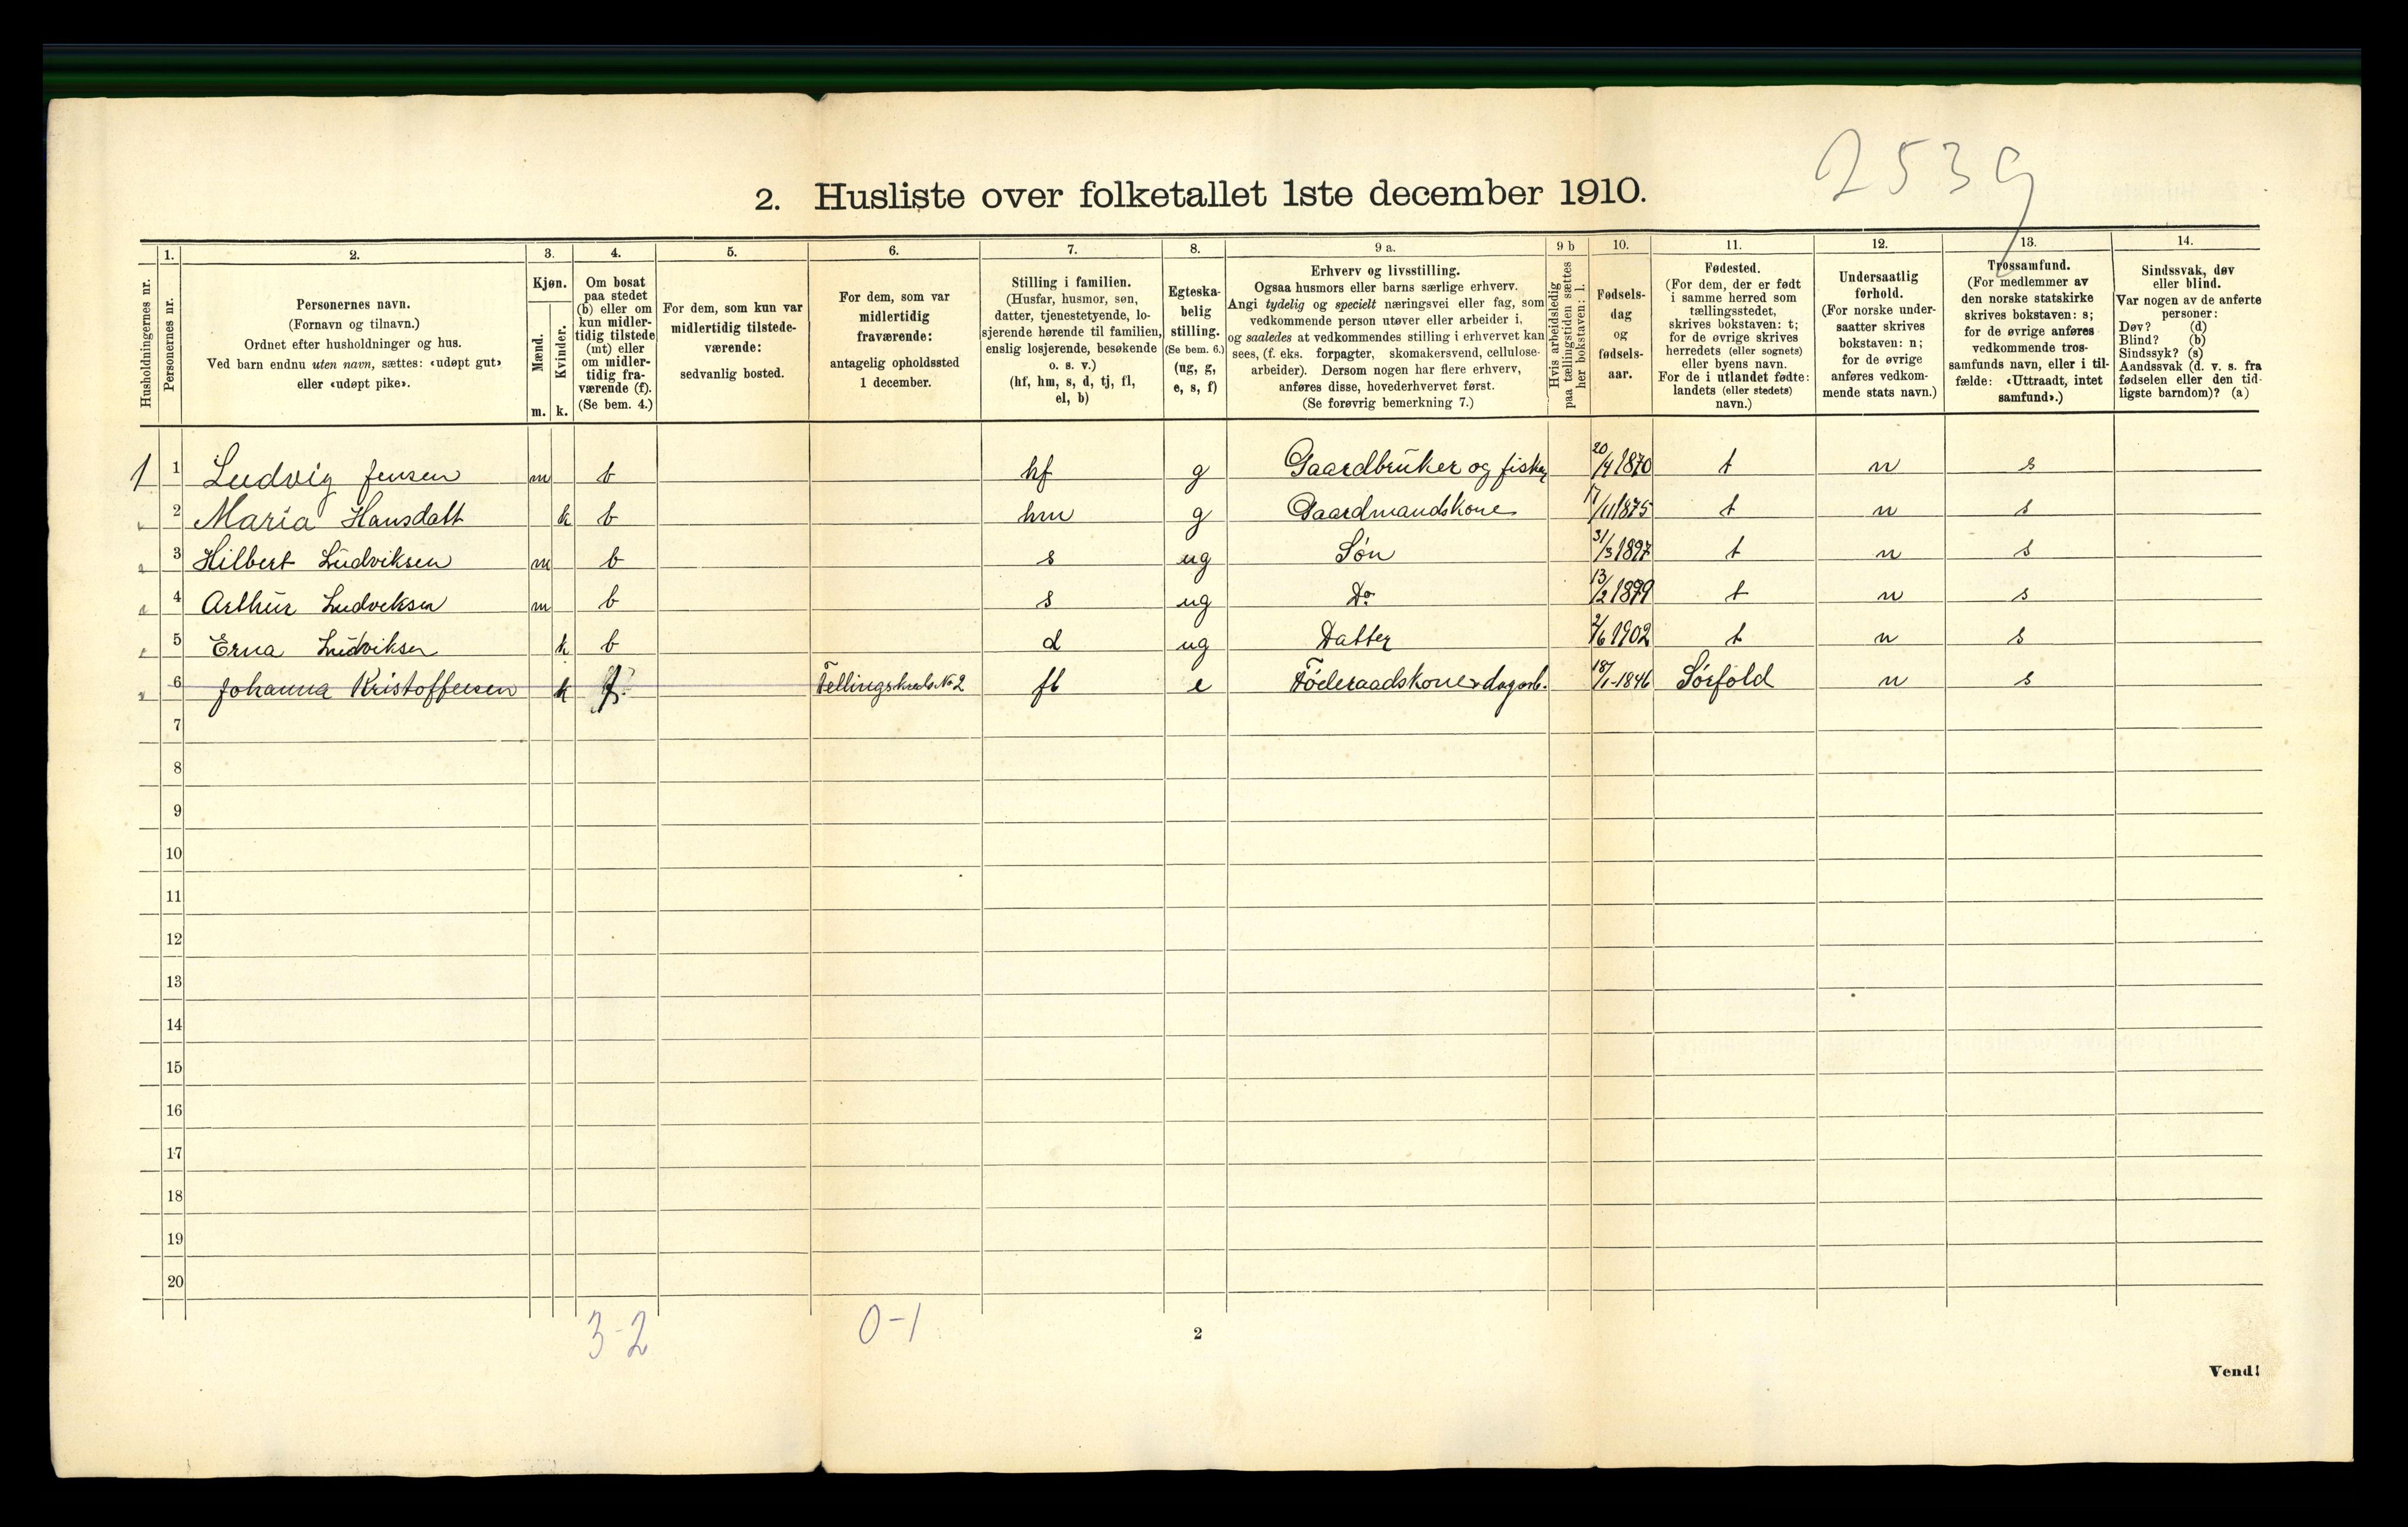 2539
2. Husliste over folketallet 1ste december 1910.
Husholdningernes nr.
1.
Personernes nr.
2.
Personernes navn.
(Fornavn og tilnavn.)
Ordnet efter husholdninger og hus.
Ved barn endnu uten navn, sættes: «udøpt gut»
eller «udøpt pike».
3.
Kjøn.
Mænd.
Kvinder.
m. k.
4.
Om bosat
paa stedet
(b) eller om
kun midler-
tidig tilstede
(mt) eller
om midler-
tidig fra-
værende (f).
(Se bem. 4.)
5.
For dem, som kun var
midlertidig tilstede-
værende:
sedvanlig bosted.
6.
For dem, som var
midlertidig
fraværende:
antagelig opholdssted
1 december.
7.
Stilling i familien.
(Husfar, husmor, søn,
datter, tjenestetyende, lo-
sjerende hørende til familien,
enslig losjerende, besøkende
o. s. v.)
(hf, hm, s, d, tj, fl,
el, b)
8.
Egteska-
belig
stilling.
(Se bem. 6.)
(ug, g,
e, s, f)
9 a.
Erhverv og livsstilling.
Ogsaa husmors eller barns særlige erhverv.
Angi tydelig og specielt næringsvei eller fag, som
vedkommende person utøver eller arbeider i,
og saaledes at vedkommendes stilling i erhvervet kan
sees, (f. eks. forpagter, skomakersvend, cellulose-
arbeider). Dersom nogen har flere erhverv,
anføres disse, hovederhvervet først.
(Se forøvrig bemerkning 7.)
9 b
Hvis arbeidsledig
paa tællingstiden sættes
her bokstaven: l.
10.
Fødsels-
dag
og
fødsels-
aar.
11.
Fødested.
(For dem, der er født
i samme herred som
tællingsstedet,
skrives bokstaven: t;
for de øvrige skrives
herredets (eller sognets)
eller byens navn.
For de i utlandet fødte:
landets (eller stedets)
navn.)
12.
Undersaatlig
forhold.
(For norske under-
saatter skrives
bokstaven: n;
for de øvrige
anføres vedkom-
mende stats navn.)
13.
Trossamfund.
(For medlemmer av
den norske statskirke
skrives bokstaven: s;
for de øvrige anføres
vedkommende tros-
samfunds navn, eller i til-
fælde: «Uttraadt, intet
samfund».)
14.
Sindssvak, døv
eller blind.
Var nogen av de anførte
personer:
Døv? (d)
Blind? (b)
Sindssyk? (s)
Aandssvak (d. v. s. fra
fødselen eller den tid-
ligste barndom)? (a)
1 1 Ludvig Jensen m b hf g Gaardbruker og fisker 20/4 1870 t n s
2 Maria Hansdatt k b hm g Gaardmandskone 17/11 1875 t n s
3 Hilbert Ludviksen m b s ug Søn 31/3 1897 t n s
4 Arthur Ludveksen m b s ug Do 13/2 1899 t n s
5 Erna Ludviksen k b d ug Datter 2/6 1902 t n s
6 Johanna Kristoffersen k f. Tellingskreds No 2 fl e Føderaadskone + dagarb. 18/1-1846 Sørfold n s
7
8
9
10
11
12
13
14
15
16
17
18
19
20
3-2 0-1
2
Vend!